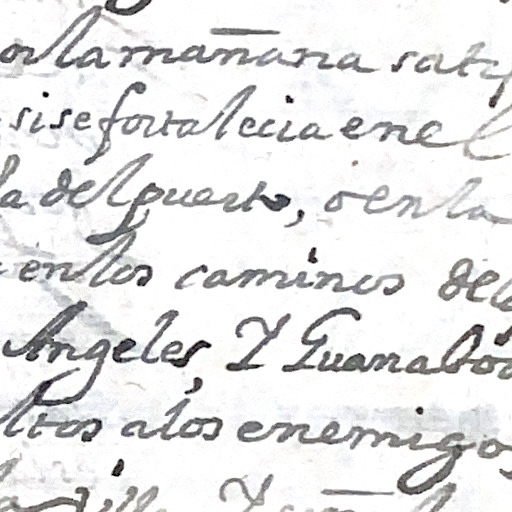 or la mañana satis
si se fortalecia en el
la del puerto, o en la
en los caminos de lo
Angeles, Y Guanaboa
ltos a los enemigos
la Villa Y